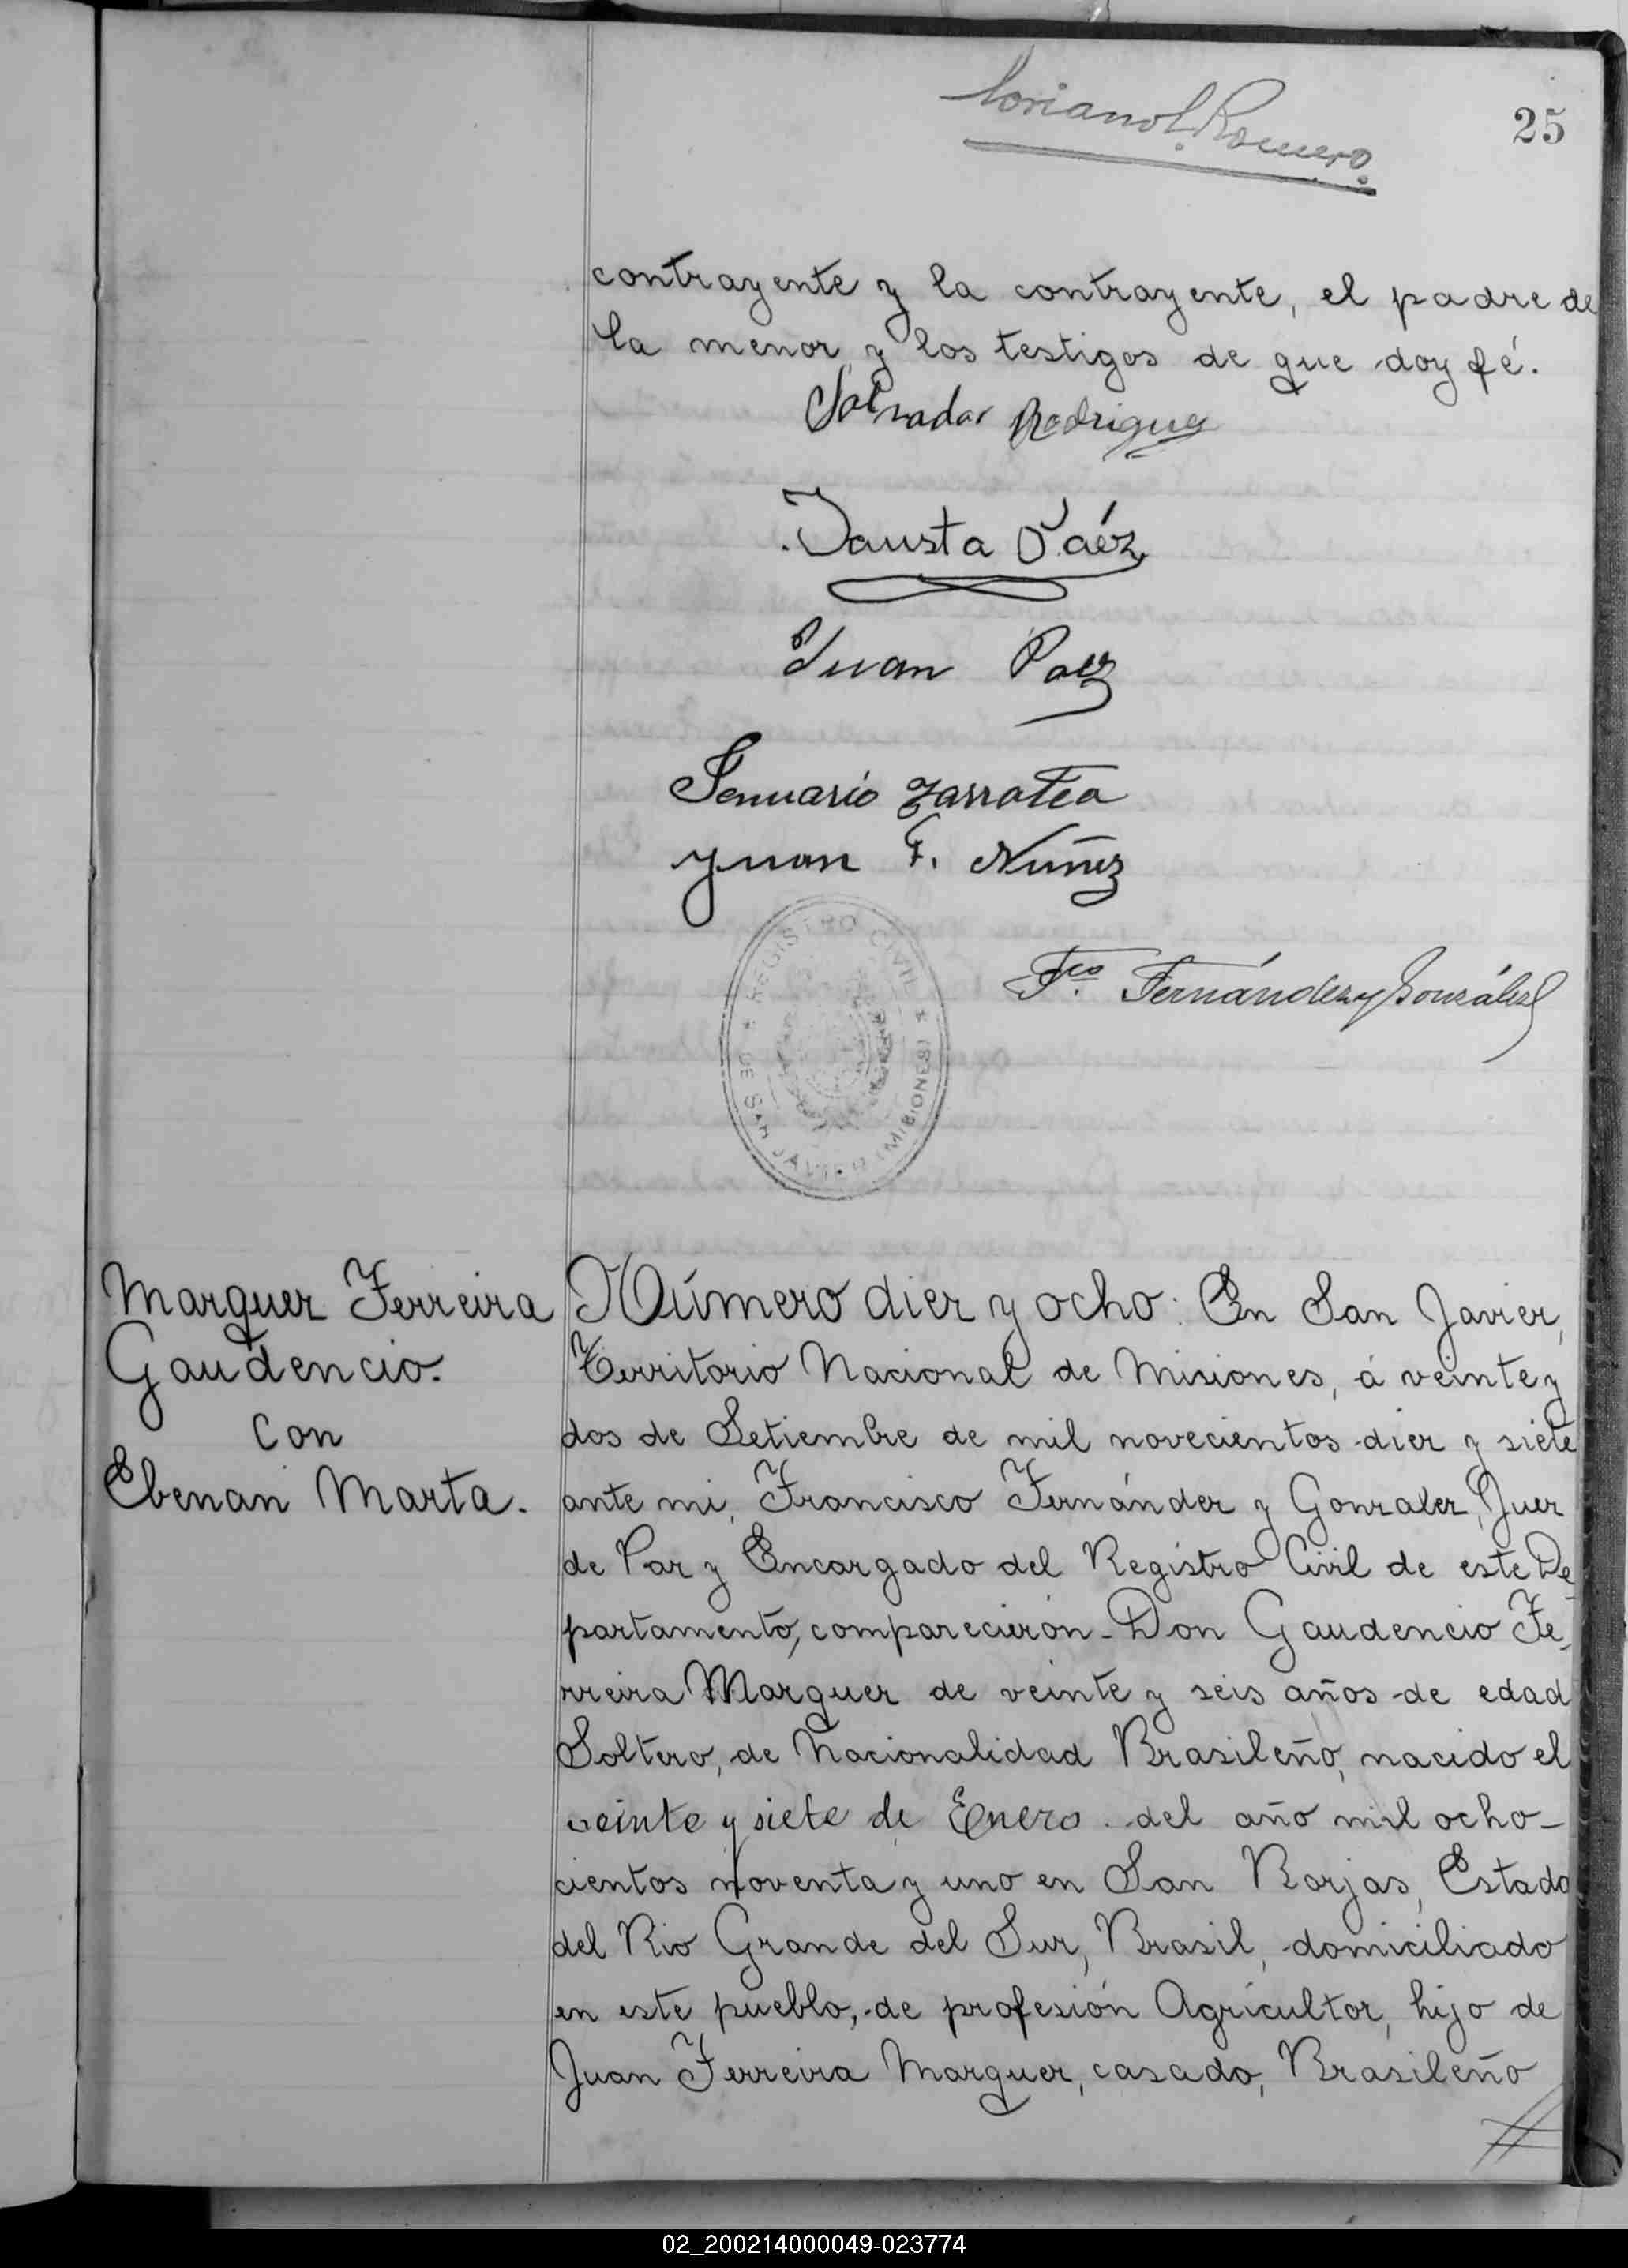 25
Romero
contrayente y la contrayente, el padre de
la menor y los testigos de que doy fé.
Salvador Rodrigues
Fausta Páéz
Juan Paez
Jenuario Zarratea
Juan F. Nuñez
REGISTRO CIVIL
DE SAN JAVIER (MISIONES)
Fco. Fernández y González
Marquez Ferreira
Gaudencio.
Con
Ebenan Marta.
Número diez y ocho: En San Javier,
Territorio Nacional de Misiones, á veinte y
dos de Setiembre de mil novecientos diez y siete
ante mi, Francisco Fernández y Gonzalez, Juez
de Paz y Encargado del Registro Civil de este De-
partamento, comparecierón Don Gaudencio Fe-
rreira Marquez de veinte y seis años de edad
Soltero, de Nacionalidad Brasileño, nacido el
veinte y siete de Enero del año mil ocho-
cientos noventa y uno en San Borjas, Estado
del Rio Grande del Sur, Brasil, domiciliado
en este pueblo, de profesión Agricultor, hijo de
Juan Ferreira Marquez, casado, Brasileño
02_200214000049-023774